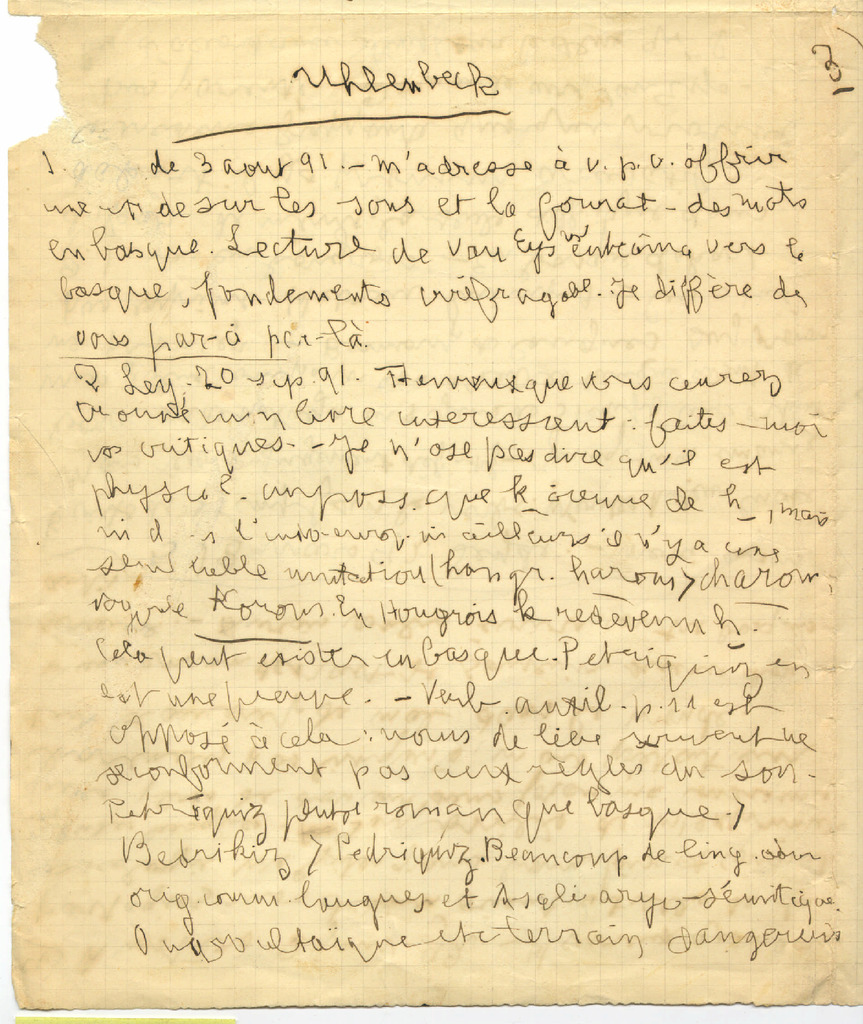 103
Uhlenbeck
1. de 3 aout 91. - m'adresse à v. p. v. offrir
une étude sur les sons et la format - des mots
en basque. Lecture de Van Eys vers le
basque, fondements irréfragabl. Je diffère de
vous par-ci par-là.
2 Ley. 20 sep. 91. que vous aurez
trouvé mon livre interessant : faites - moi
vos critiques - Je n'ose pas dire qu'il est
physiol. imposs. que k vienne de h, mais
ni d s l'indo-europ. ni ailleurs il n'y a une
semblable mutation (hongr. harom > charom,
vogule Korom. En Hongrois k redevenu h.
Cela peut exister en basque. Petriquiz en
est une preuve. - Verb. auxil. p. 11 est
opposé à cela : noms de lieu souvent ne
se conforment pas aux règles du son.
Petriquiz plutot roman que basque. >
Bedrikiz > Pedriquiz. Beaucoup de ling.
orig. comm. langues et Ascoli aryo-sémitique.
Ougro altaïque etc terrain dangereux